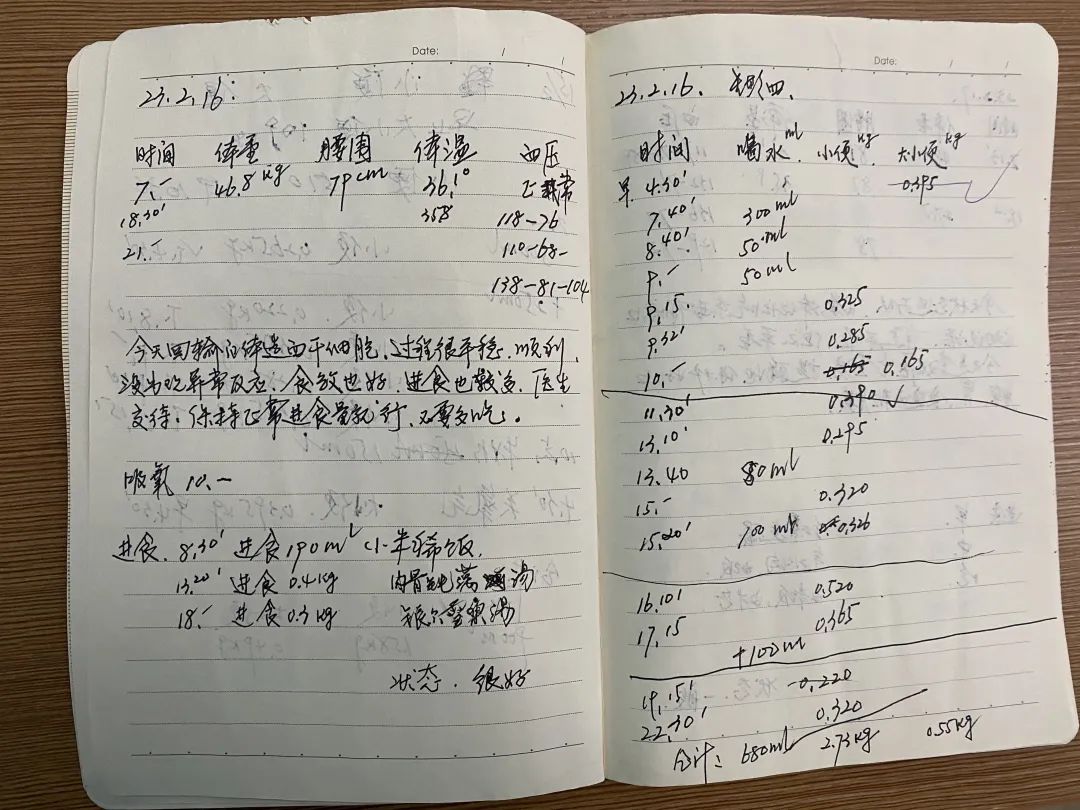 Date: / /
23.2.16.
时间 体重 腰围 体温 血压
7.- 46.8kg 79cm 36.1° 正常
18.30' 358 118-76
21.- 110-68-
138-81-104
今天回输自体造血干细胞,过程很平稳.顺利,
没出现异常反应,食欲也好 进食也较多.医生
交待:保持正常进食量就行,不要多吃。
吸氧 10.-
进食. 8.30' 进食190ml 小半稀饭.
13.20' 进食 0.4kg 肉骨炖 汤
18.- 进食 0.3kg 银尔雪梨汤
状态.很好
Date: / /
23.2.16. 星期四.
时间 喝水ml 小便kg 大小便kg
早 4.30' 0.395
7.40' 300ml
8.40' 50ml
9.- 50ml
9.15. 0.325
9.32' 0.285
10.- 0.165 0.165
11.30' 0.390 ✓
13.10' 0.295
13.40 80ml
15.- 0.320
15.20' 100ml 0.326
16.10' 0.520
17.15 0.365
+100ml
19.15' 0.220
22.30' 0.320
合计: 680ml 2.73kg 0.55kg